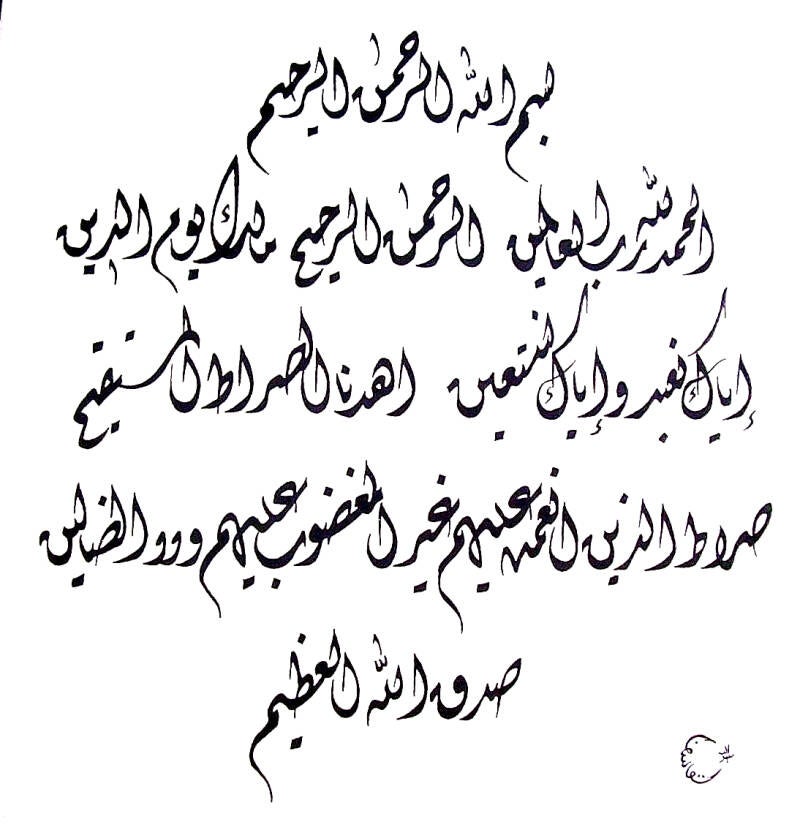 بسم الله الرحمن الرحيم
الحمد لله رب العالمين الرحمن الرحيم مالك يوم الدين
إياك نعبد وإياك نستعين اهدنا الصراط المستقيم
صراط الذين انعمت عليهم غير المغضوب عليهم ولا الضالين
صدق الله العظيم